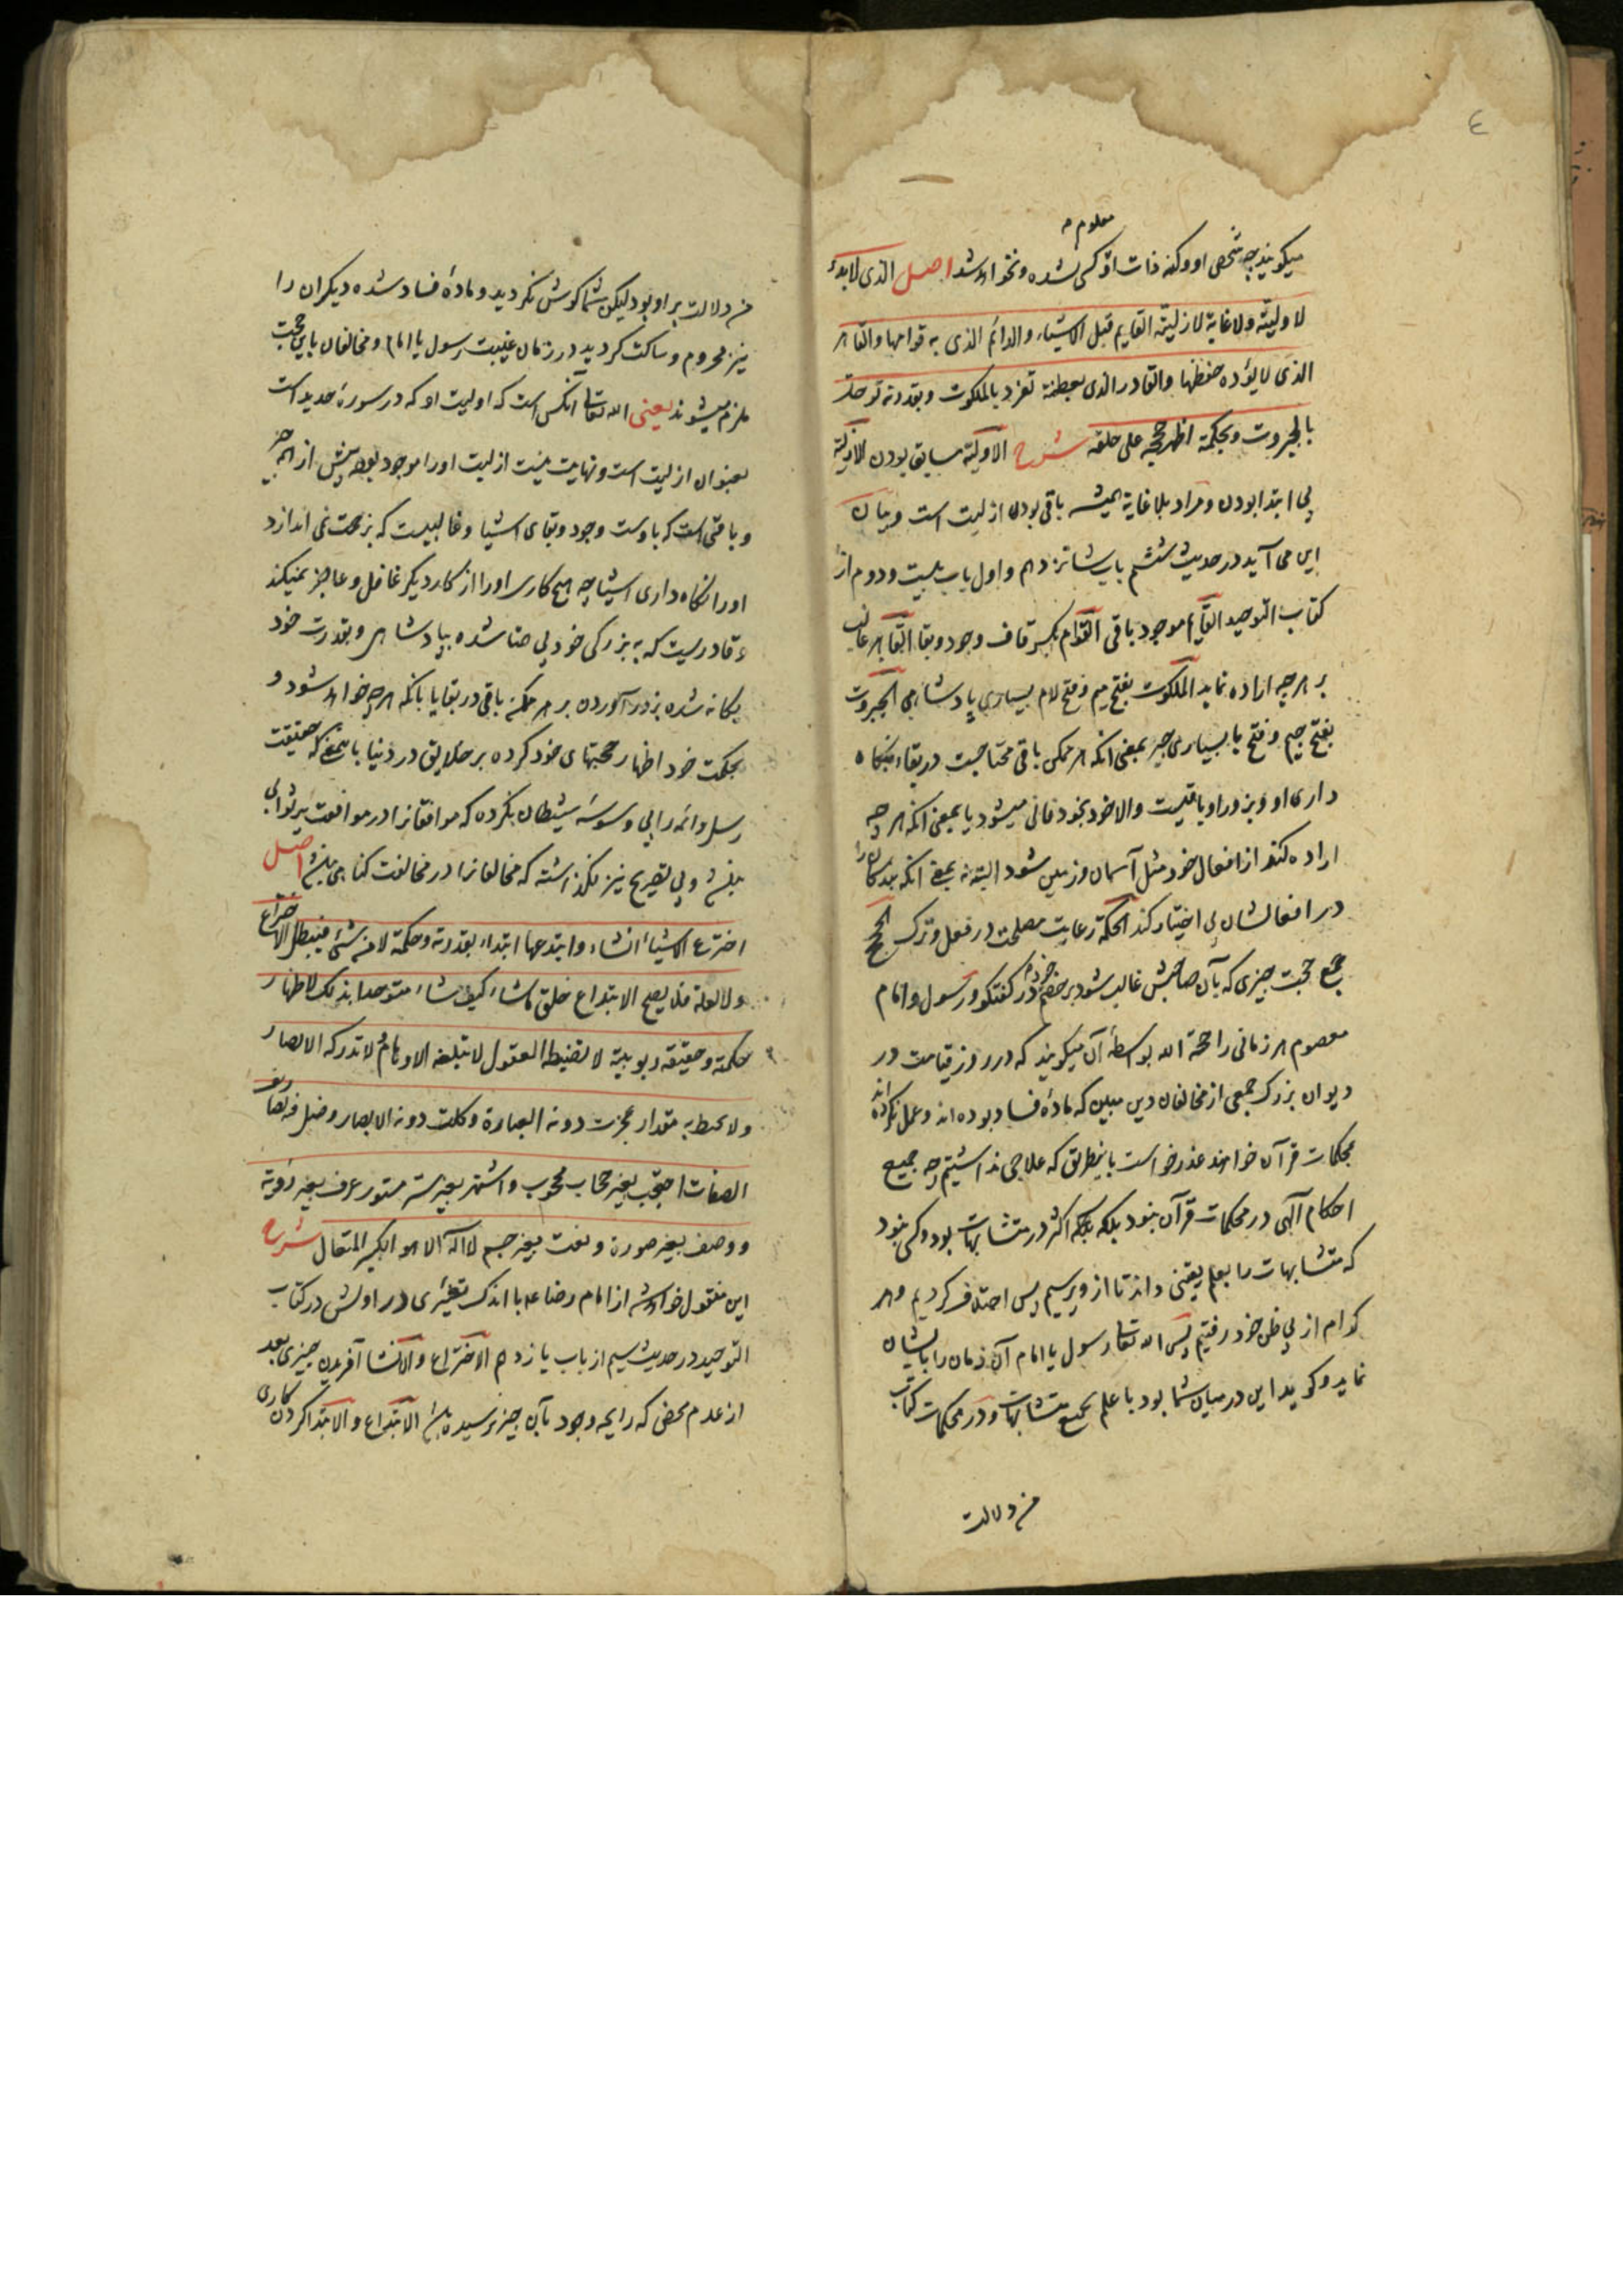 ٤
معلوم م
میکویند چه شخص او و کنه ذات او کسی نشده و نخواهد شد اصل الذی لا بدء
لاولیته ولا غایة لازلیته القایم قبل الاشیاء والدائم الذی به قوامها والقاهر
الذی لا یؤده حفظها والقادر الذی بعظمته تفرد بالملکوت وبقدرته توحد
بالجبروت وبحکمته اظهر حججه علی خلقه شرح الاولیة سابق بودن الازلیة
بی ابتدا بودن و مراد بلا غایة همیشه باقی بودن ازلیت است و بیان
این می آید در حدیث ششم باب شانزدهم و اول باب بیست و دوم از
کتاب التوحید القایم موجود باقی القوام بکسر قاف وجود و بقا القاهر غالب
بر هر چه اراده نماید الملکوت بفتح میم و فتح لام بسیاری پادشاهی الجبروت
بفتح جیم و فتح با بسیاری جبر بمعنی انکه هر ممکن باقی محتاجست در بقاء بنکاه
داری او و بزور او باقیست والا خود بخود فانی میشود یا بمعنی انکه هر چه
اراده کند از افعال خود مثل آسمان و زمین شود البته نه بمعنی انکه بندکان را
در افعالشان بی اختیار کند الحکمة رعایت مصلحت در فعل و ترک الحجج
جمع حجت چیزی که بآن صاحبش غالب شود بر خصم خود در کفتکو و رسول و امام
معصوم هر زمانی را حجة الله بواسطهٔ آن میکویند که در روز قیامت در
دیوان بزرک جمعی از مخالفان دین مبین که مادهٔ فساد بوده اند و عمل نکرده اند
بمحکمات قرآن خواهند عذر خواست باینطریق که علاجی نداشتیم چه جمیع
احکام آلهی در محکمات قرآن نبود بلکه بلکه اکثر در متشابهات بود و کسی نبود
که متشابهات را بعلم یقینی داند تا از و پرسیم پس اختلاف کردیم و هر
کدام از پی ظن خود رفتیم پس الله تعالی رسول یا امام آن زمان را بایشان
نماید و کوید این در میان شما بود با علم بجمیع متشابهات و در محکمات کتاب
من دلالت
من دلالت بر او بود لیکن شما کوش نکردید و مادهٔ فساد شده دیکران را
نیز محروم و ساکت کردید در زمان غیبت رسول یا امام و مخالفان باین حجت
ملزم میشوند یعنی الله تعالی انکس است که اولیت او که در سورهٔ حدید است
بعنوان ازلیت است و نهایت نیست ازلیت او را موجود بوده پیش از هر چیز
و باقی است که باوست وجود و بقای اشیا و غالبیست که بزحمت نمی اندازد
او را نکاه داری اشیا چه هیچ کاری او را از کار دیکر غافل و عاجز نمیکند
و قادریست که به بزرکی خود بی همتا شده بپادشاهی و بقدرت خود
یکانه شده بزور آوردن بر هر ممکن باقی در بقا یا بانکه هر چه خواهد شود و
بحکمت خود اظهار حجتهای خود کرده بر خلایق در دنیا باینمعنی که حقیقت
رسل و ائمه را بی وسوسهٔ شیطان نکرده که موافقانرا در موافقت بر ثوابی
باشد و بی تصریح نیز نکذاشته که مخالفانرا در مخالفت کناهی باشد اصل
اخترع الاشیاء انشاء وابتدعها ابتداء بقدرته وحکمته لا من شیء فیبطل الاختراع
ولا لعلة فلا یصح الابتداع خلق ما شاء کیف شاء متوحدا بذلک لاظهار
حکمته وحقیقة ربوبیته لا تضبطه العقول لا تبلغه الاوهام لا تدرکه الابصار
ولا یحیط به مقدار عجزت دونه العبارة وکلت دونه الابصار وضل فیه تصاریف
الصفات احتجب بغیر حجاب محجوب واستتر بغیر ستر مستور عرف بغیر رؤیة
ووصف بغیر صورة ونعت بغیر جسم لا اله الا هو الکبیر المتعال شرح
این منقول خواهد شد از امام رضا ع با اندک تغییری در اولش در کتاب
التوحید در حدیث سیم از باب یازدهم الاختراع والانشا آفریدن چیزی بعد
از عدم محض که رایحه وجود بآن چیز نرسیده باشد الابتداع والابتدا کردن کاری